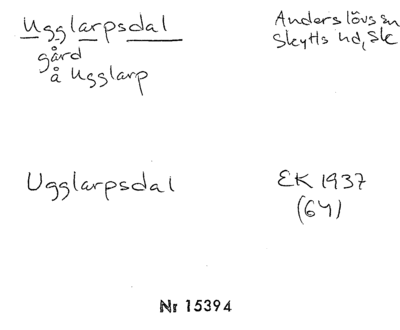 Ugglarpsdal
gård
å Ugglarp
Anderslövs sn
Skytts hd, Sk
Ugglarpsdal
EK 1937
(64)
Nr 15394